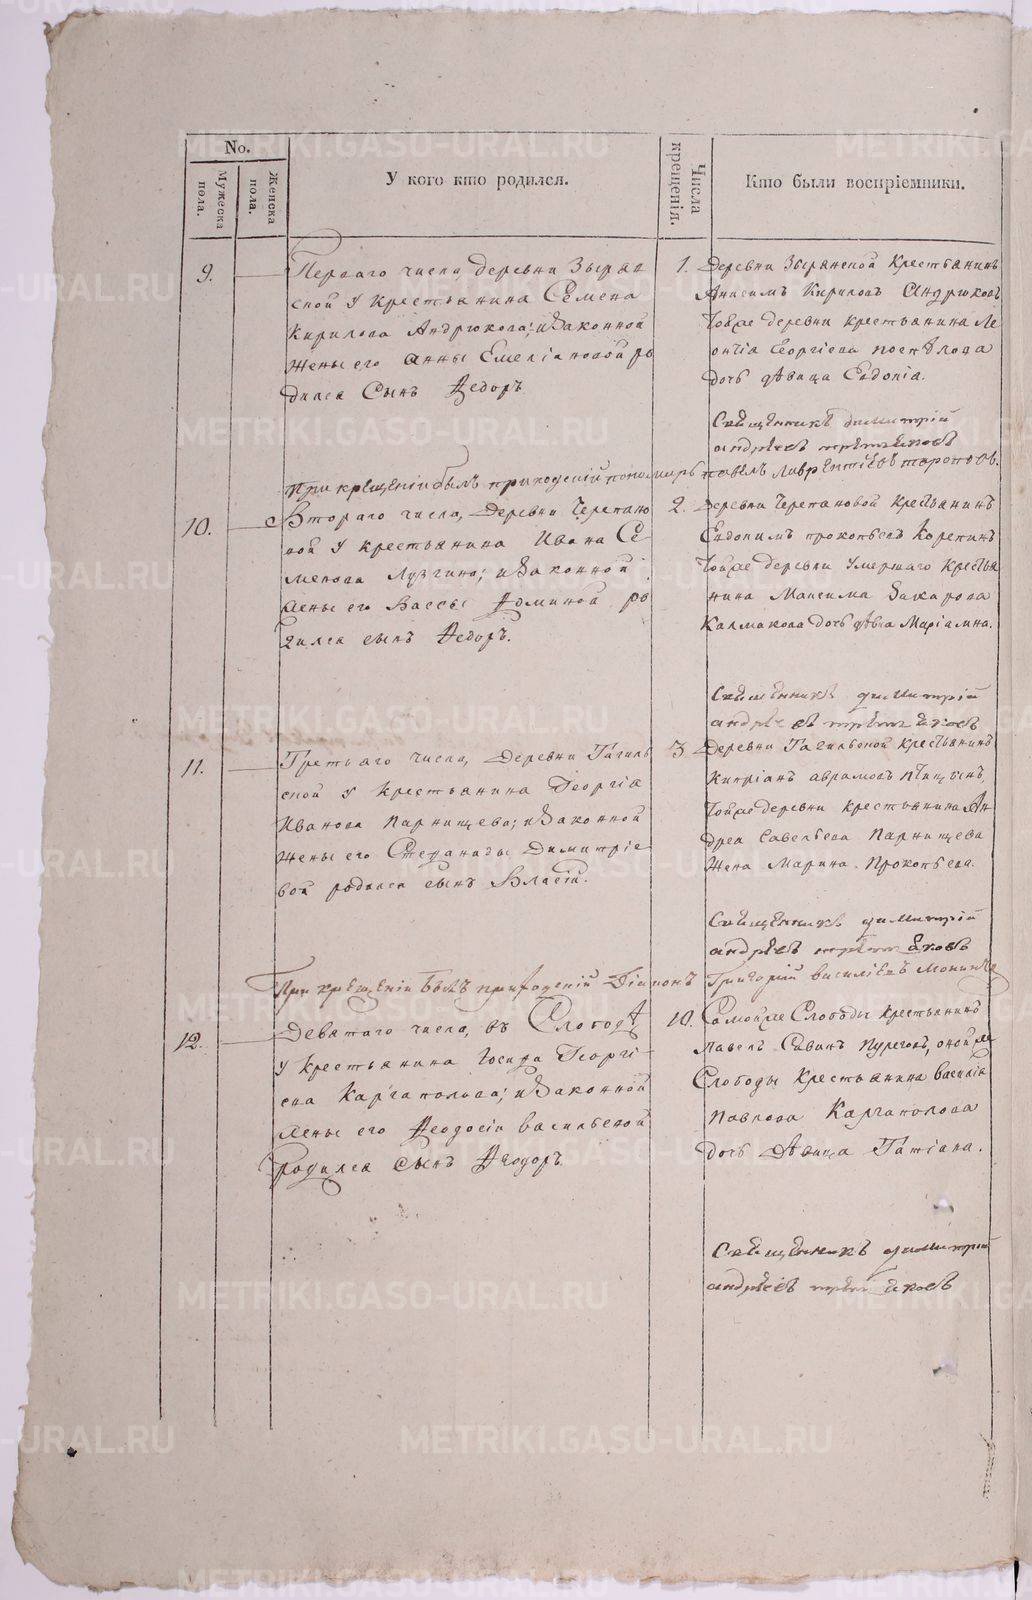 No.
Мужеска пола.
Женска пола.
У кого кто родился.
Числа крещенія.
Кто были воспріемники.
9.
Перваго числа, деревни Зырян
ской у крестьянина Семена
Кирилова Андрюкова; и Законной
жены его Анны Емеліановой ро
дился Сынъ Ѳедоръ.
1.
Деревни Зырянской Крестьянинъ
Анисимъ Кириловъ Андрюковъ
тойже деревни крестьянина Ле
онтіа Георгіева Поспѣлова
дочь дѣвица Евдокіа.
Священникъ Димитрій
Андреевъ Третьяковъ
При крещеніи былъ приходскій пономарь Павелъ Лаврентіевъ Топорковъ.
10.
Втораго числа, Деревни Черепано
вой у крестьянина Ивана Се
менова Лузгина; и Законной
жены его Вассы Фоминой ро
дился сынъ Ѳедоръ.
2.
Деревни Черепановой Крестьянинъ
Евдокимъ Прокопьевъ Корепинъ
тойже деревни умершаго Крестья
нина Максима Захарова
Калмакова дочь дѣвка Маріамна.
Священникъ Димитрій
Андреевъ Третьяковъ
11.
Третьяго числа, Деревни Тагиль
ской у Крестьянина Георгіа
Иванова Парницева; и Законной
жены его Степаниды Димитріе
вой родился сынъ Власій.
3.
Деревни Тагильской Крестьянинъ
Кипріанъ Аврамовъ Птицынъ,
тойже деревни крестьянина Ан
дрея Савельева Парницева
жена Марина Прокопьева.
Священникъ Димитрій
Андреевъ Третьяковъ
При крещеніи былъ приходскій Діаконъ Григорій Василіевъ
12.
Девятаго числа, въ Слободѣ
у крестьянина Іосифа Георгі
ева Каргаполова; и Законной
жены его Ѳеодосіи Васильевой
родился Сынъ Ѳеодоръ.
10.
Самойже Слободы крестьянинъ
Павелъ Савинъ Пурегов, онойже
Слободы Крестьянина Василіа
Павлова Каргаполова
дочь Дѣвица Татіана.
Священникъ Димитрій
Андреевъ Третьяковъ
METRIKI.GASO-URAL.RU